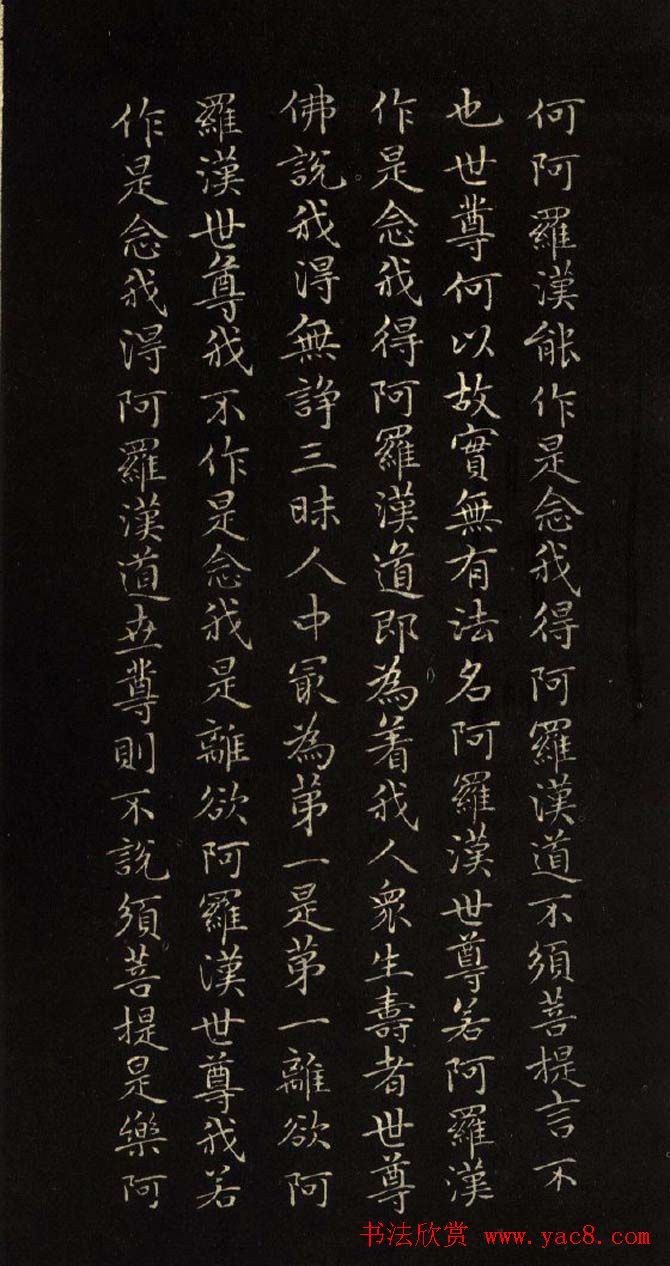 何阿羅漢能作是念我得阿羅漢道不須菩提言不
也世尊何以故實無有法名阿羅漢世尊若阿羅漢
作是念我得阿羅漢道即為着我人眾生壽者世尊
佛說我得無諍三昧人中最為第一是第一離欲阿
羅漢世尊我不作是念我是離欲阿羅漢世尊我若
作是念我得阿羅漢道世尊則不說須菩提是樂阿
书法欣赏 www.yac8.com